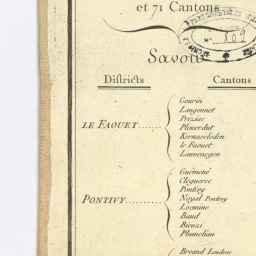 et 71 Cantons
Savoir
Districts Cantons
LE FAOUET
Gourin
Langonnet
Priziac
Plouerdut
Kernascleden
le Faouet
Lanvenegen
PONTIVY
Guémené
Cleguerec
Pontivy
Noyal Pontivy
Locmine
Baud
Bieuzi
Plumeliau